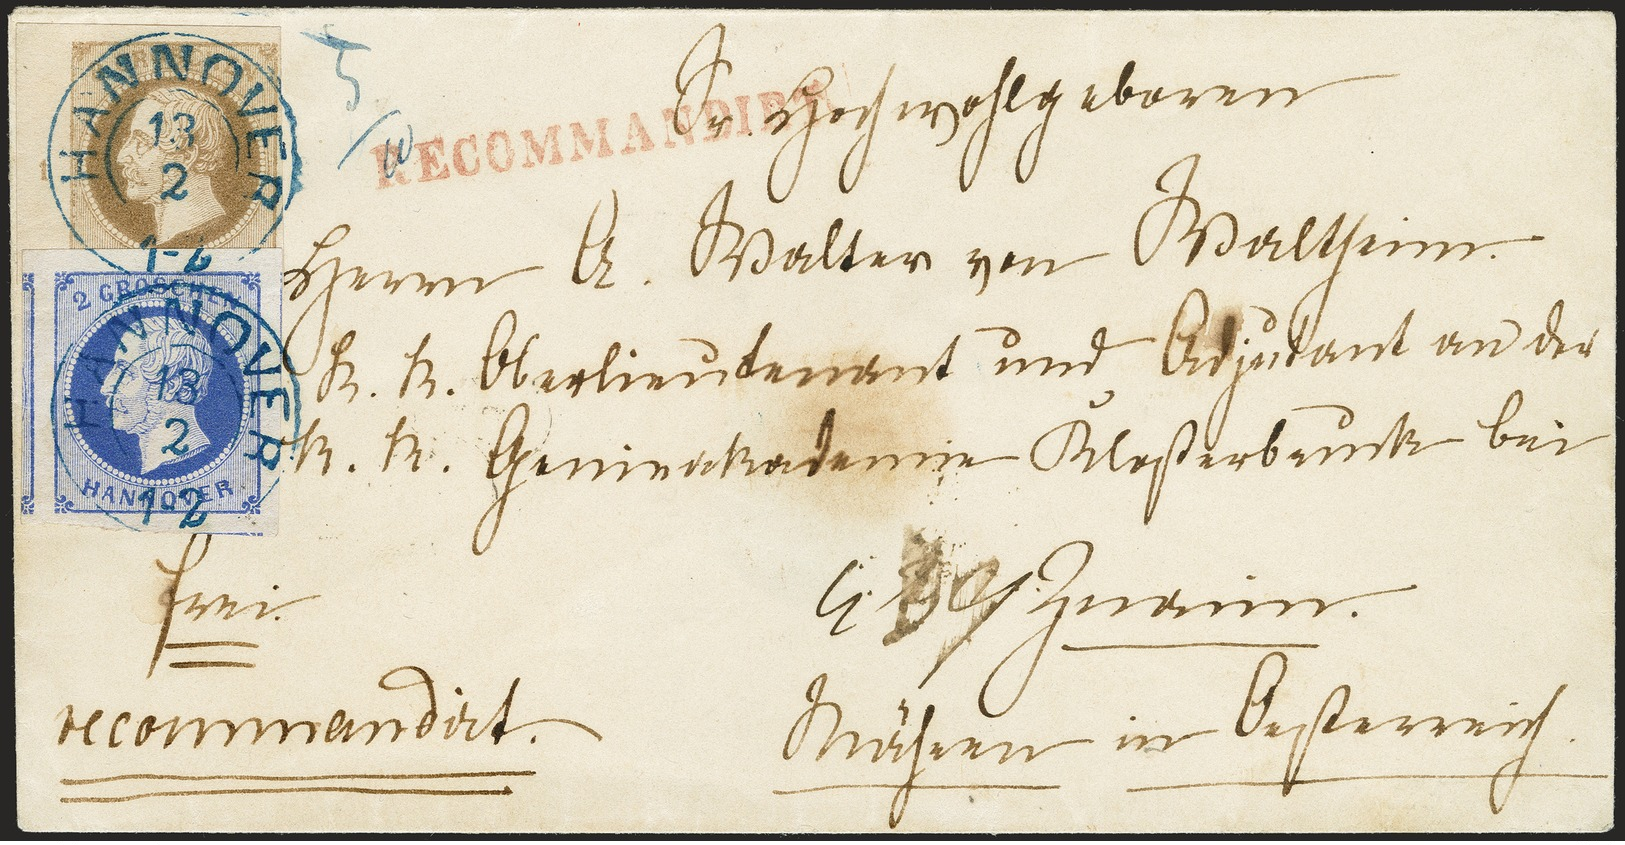 HANNOVER
13
2
1-2
2 GROSCHEN
HANNOVER
13
2
1-2
HANNOVER
5
RECOMMANDIRT
Sr. Hochwohlgeboren
Herrn A. Walter von Waltheim.
K. K. Oberlieutenant und Adjutant an der
K. K. Genieakademie Klosterbruck bei
Znaim.
frei.
recommandirt.
Mähren in Oesterreich.